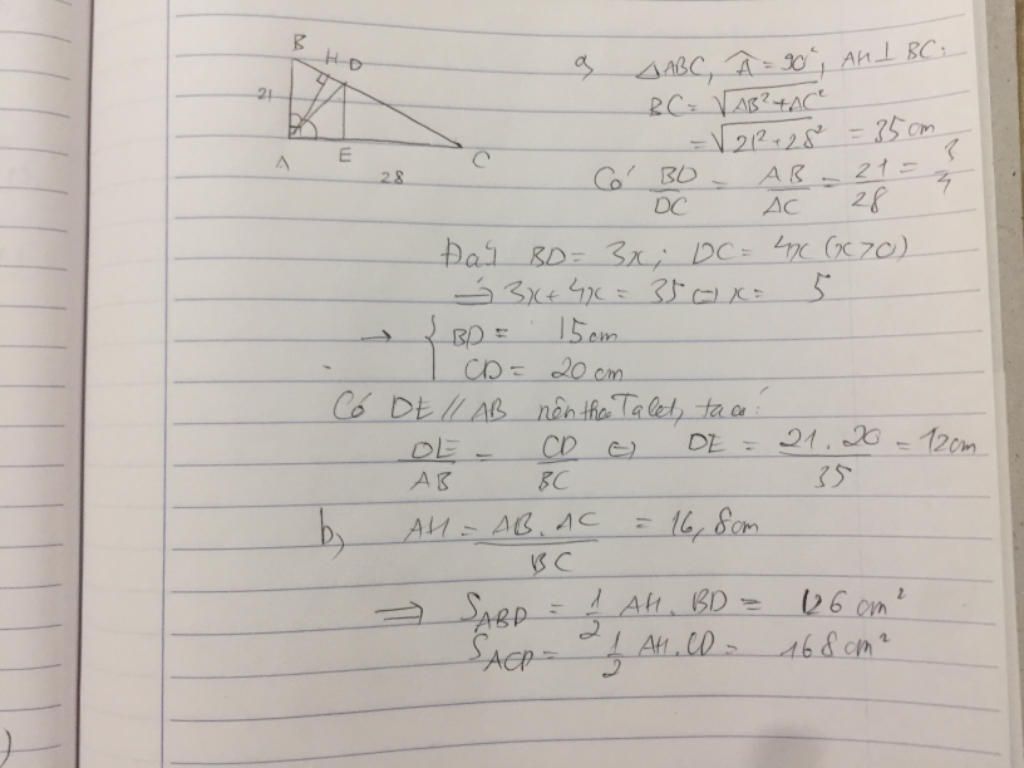 B H D
21
A E C
28
a, △ABC, Â = 90°, AH ⊥ BC:
BC = √AB² + AC²
= √21² + 28² = 35 cm
Có BD/DC = AB/AC = 21/28 = 3/4
Đặt BD = 3x ; DC = 4x (x > 0)
⇒ 3x + 4x = 35 ⇔ x = 5
→ { BD = 15 cm
CD = 20 cm
Có DE // AB nên theo Talet, ta có:
DE/AB = CD/BC ⇔ DE = 21 . 20/35 = 12 cm
b, AH = AB . AC/BC = 16,8 cm
⇒ S_ABD = 1/2 AH . BD = 126 cm²
S_ACD = 1/2 AH . CD = 168 cm²